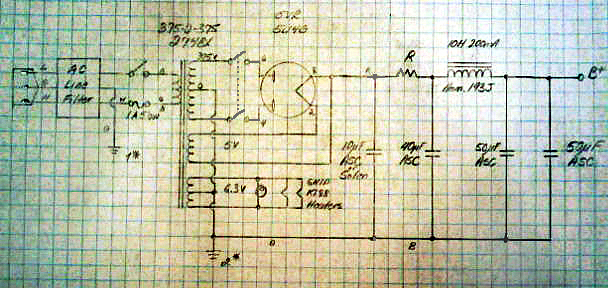 375-0-375
274BX
5U4G
AC
Line
Filter
L
N
1A Slow
1*
375V
0
5V
6.3V
R
10H 200mA
Ham. 193J
B+
10µF
ASC
Solen
40µF
ASC
50µF
ASC
50µF
ASC
Heaters
2*
B